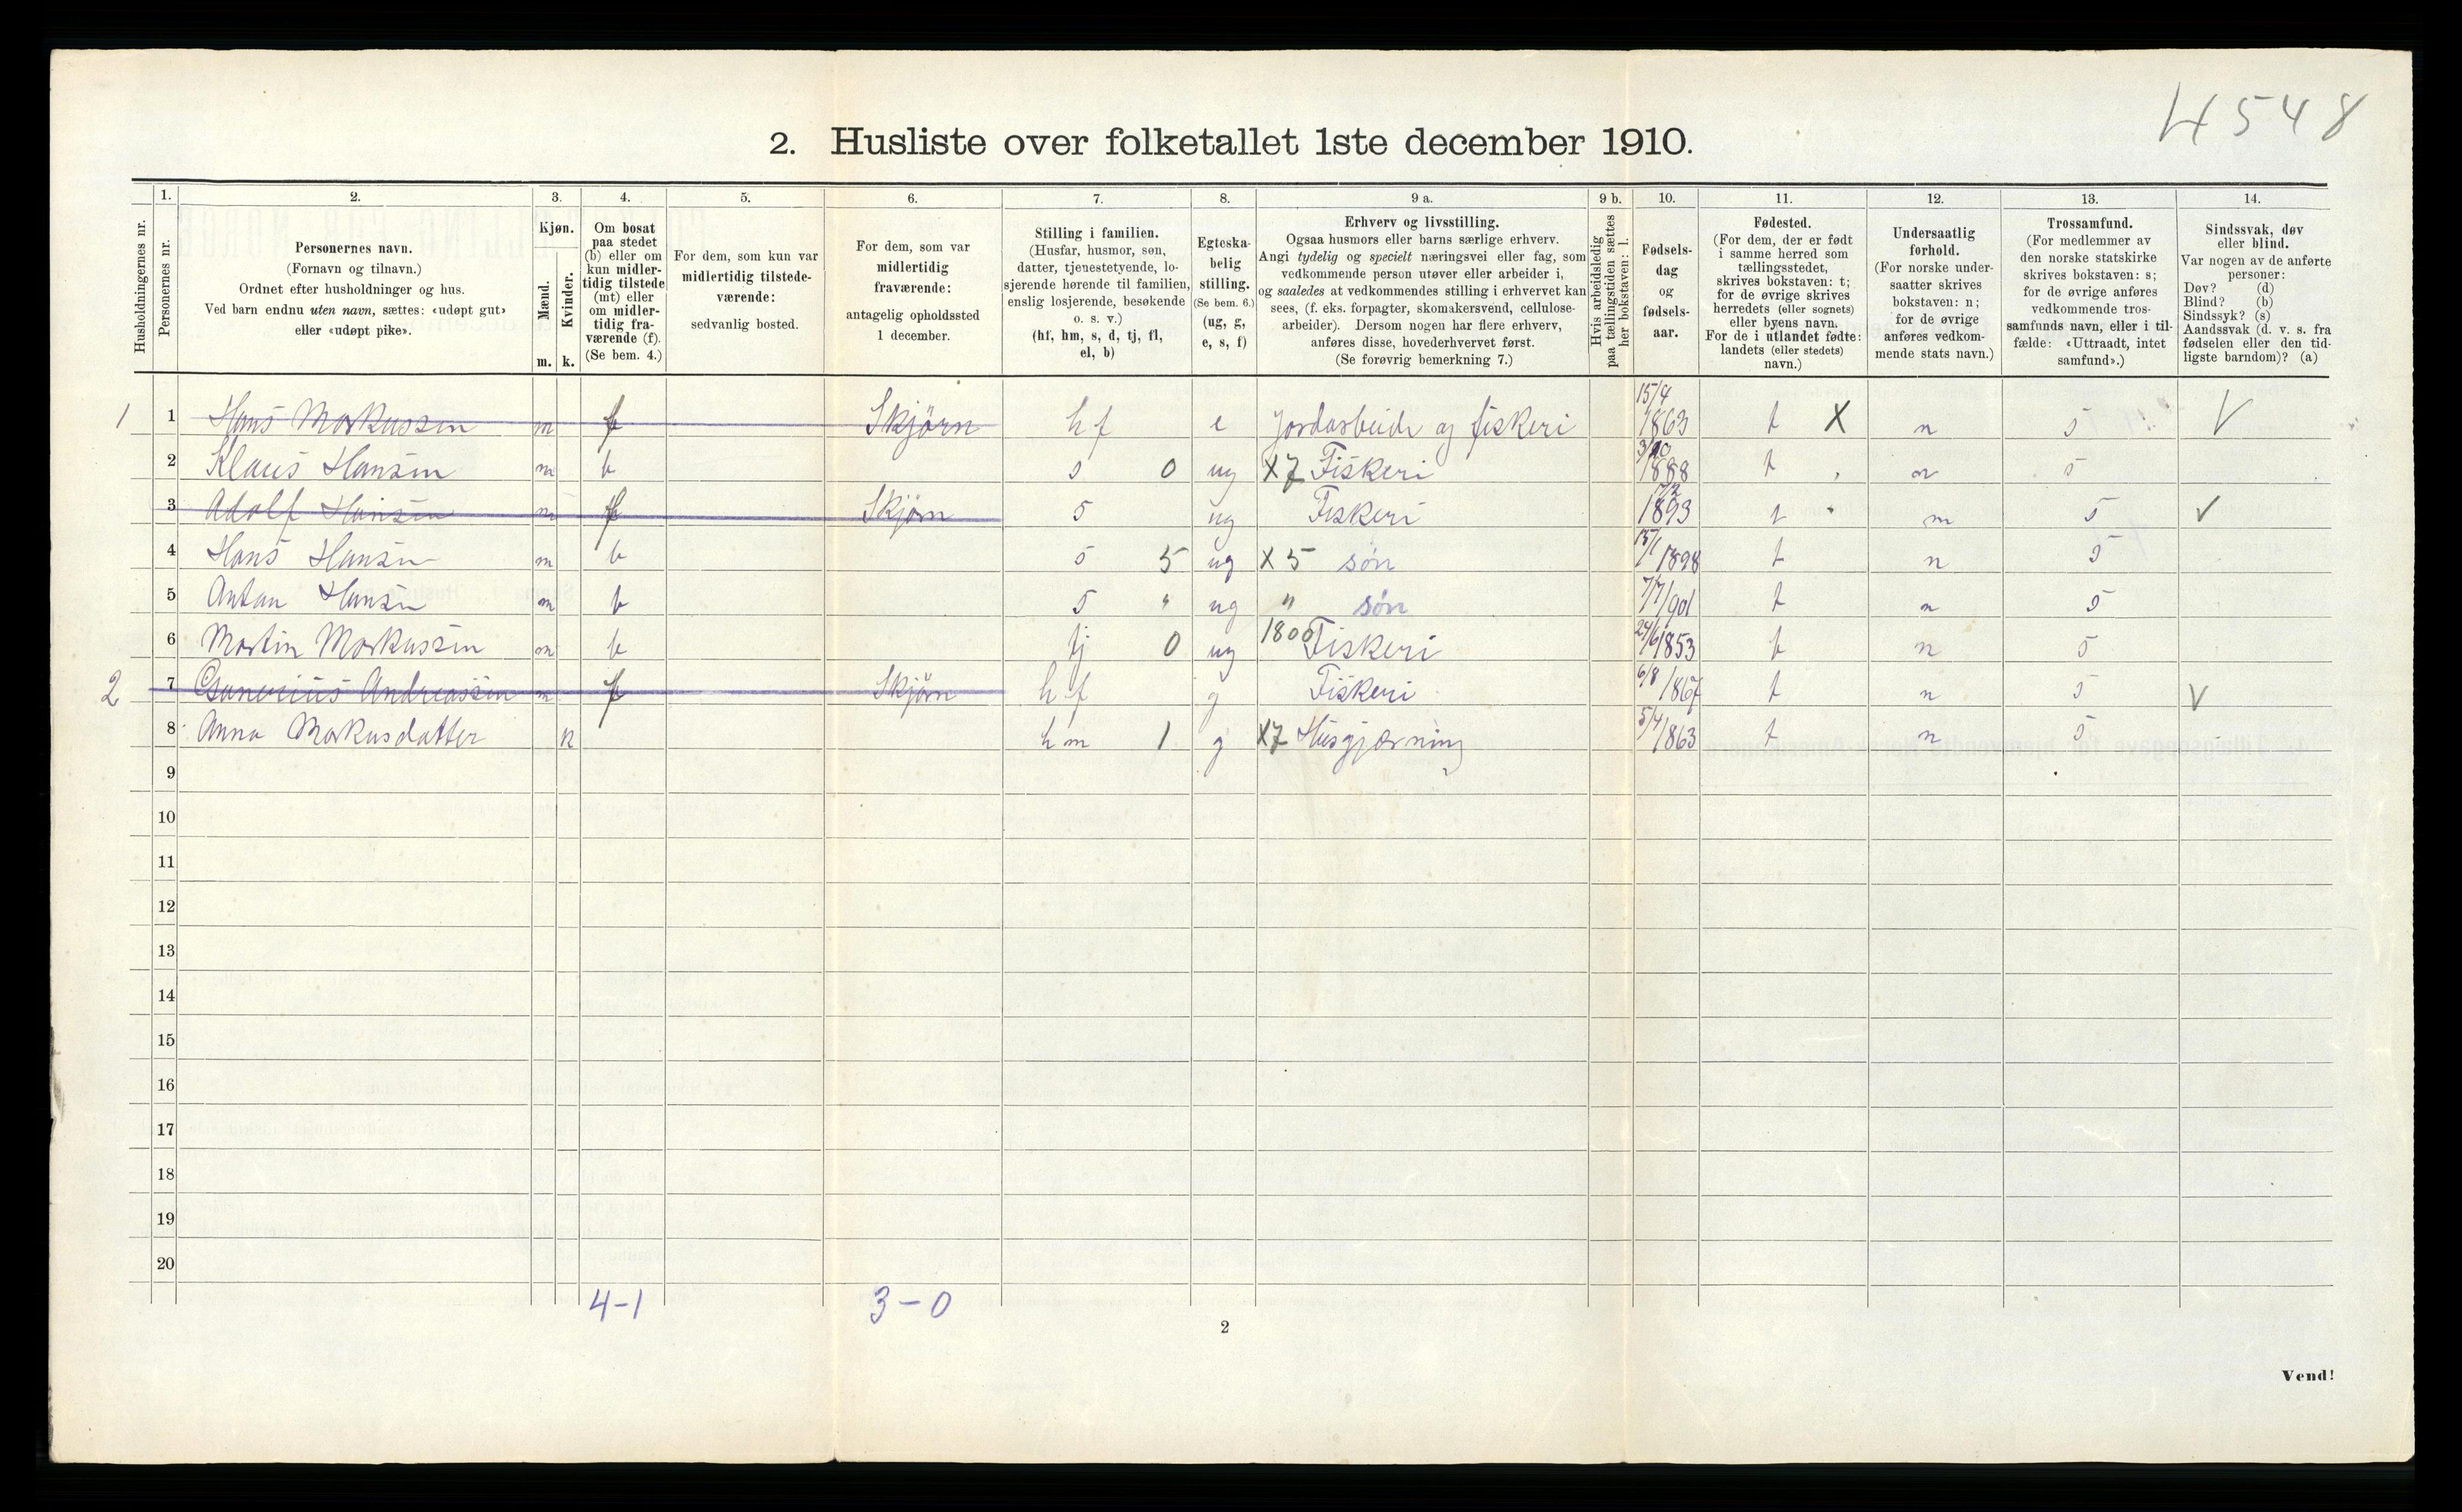 4548
2. Husliste over folketallet 1ste december 1910.
Husholdningernes nr.
1.
Personernes nr.
2.
Personernes navn.
(Fornavn og tilnavn.)
Ordnet efter husholdninger og hus.
Ved barn endnu uten navn, sættes: «udøpt gut»
eller «udøpt pike».
3.
Kjøn.
Mænd.
Kvinder.
m. k.
4.
Om bosat
paa stedet
(b) eller om
kun midler-
tidig tilstede
(mt) eller
om midler-
tidig fra-
værende (f).
(Se bem. 4.)
5.
For dem, som kun var
midlertidig tilstede-
værende:
sedvanlig bosted.
6.
For dem, som var
midlertidig
fraværende:
antagelig opholdssted
1 december.
7.
Stilling i familien.
(Husfar, husmor, søn,
datter, tjenestetyende, lo-
sjerende hørende til familien,
enslig losjerende, besøkende
o. s. v.)
(hf, hm, s, d, tj, fl,
el, b)
8.
Egteska-
belig
stilling.
(Se bem. 6.)
(ug, g,
e, s, f)
9 a.
Erhverv og livsstilling.
Ogsaa husmors eller barns særlige erhverv.
Angi tydelig og specielt næringsvei eller fag, som
vedkommende person utøver eller arbeider i,
og saaledes at vedkommendes stilling i erhvervet kan
sees, (f. eks. forpagter, skomakersvend, cellulose-
arbeider). Dersom nogen har flere erhverv,
anføres disse, hovederhvervet først.
(Se forøvrig bemerkning 7.)
9 b.
Hvis arbeidsledig
paa tællingstiden sættes
her bokstaven: l.
10.
Fødsels-
dag
og
fødsels-
aar.
11.
Fødested.
(For dem, der er født
i samme herred som
tællingsstedet,
skrives bokstaven: t;
for de øvrige skrives
herredets (eller sognets)
eller byens navn.
For de i utlandet fødte:
landets (eller stedets)
navn.)
12.
Undersaatlig
forhold.
(For norske under-
saatter skrives
bokstaven: n;
for de øvrige
anføres vedkom-
mende stats navn.)
13.
Trossamfund.
(For medlemmer av
den norske statskirke
skrives bokstaven: s;
for de øvrige anføres
vedkommende tros-
samfunds navn, eller i til-
fælde: «Uttraadt, intet
samfund».)
14.
Sindssvak, døv
eller blind.
Var nogen av de anførte
personer:
Døv? (d)
Blind? (b)
Sindssyk? (s)
Aandssvak (d. v. s. fra
fødselen eller den tid-
ligste barndom)? (a)
1 1 Hans Markussen m f Skjörn hf e Jordarbeide og fiskeri 15/4 1863 t X n s V
2 Klaus Hansen m b s 0 ug X7 Fiskeri 3/10 1888 t n s
3 Adolf Hansen m f Skjörn s ug Fiskeri 1893 t n s V
4 Hans Hansen m b s 5 ug X 5 søn 15/1 1898 t n s
5 Anton Hansen m b s " ug " søn 7/7/901 t n s
6 Martin Markussen m b tj 0 ug 1800 Fiskeri 24/6 1853 t n s
2 7 Gunerius Andreassen m f Skjörn hf g Fiskeri 6/8/867 t n s V
8 Anna Markusdatter k hm 1 g X7 Husgjærning 5/4/1863 t n s
9
10
11
12
13
14
15
16
17
18
19
20
4-1 3-0
2
Vend!